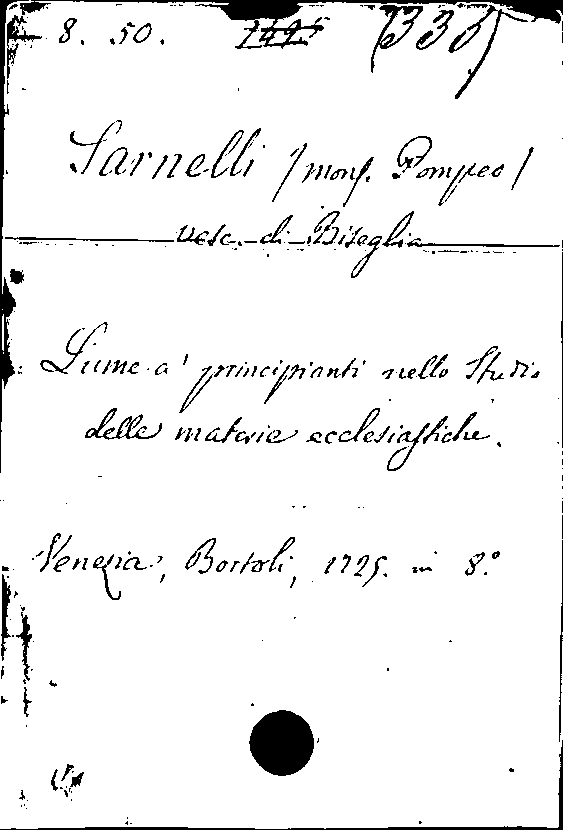 8. 50. (335)
Sarnelli /monſ. Pompeo/
vesc. di Biseglia
Lume a' principianti nello Studio
delle materie ecclesiaſtiche.
Venezia, Bortoli, 1725. in 8.°